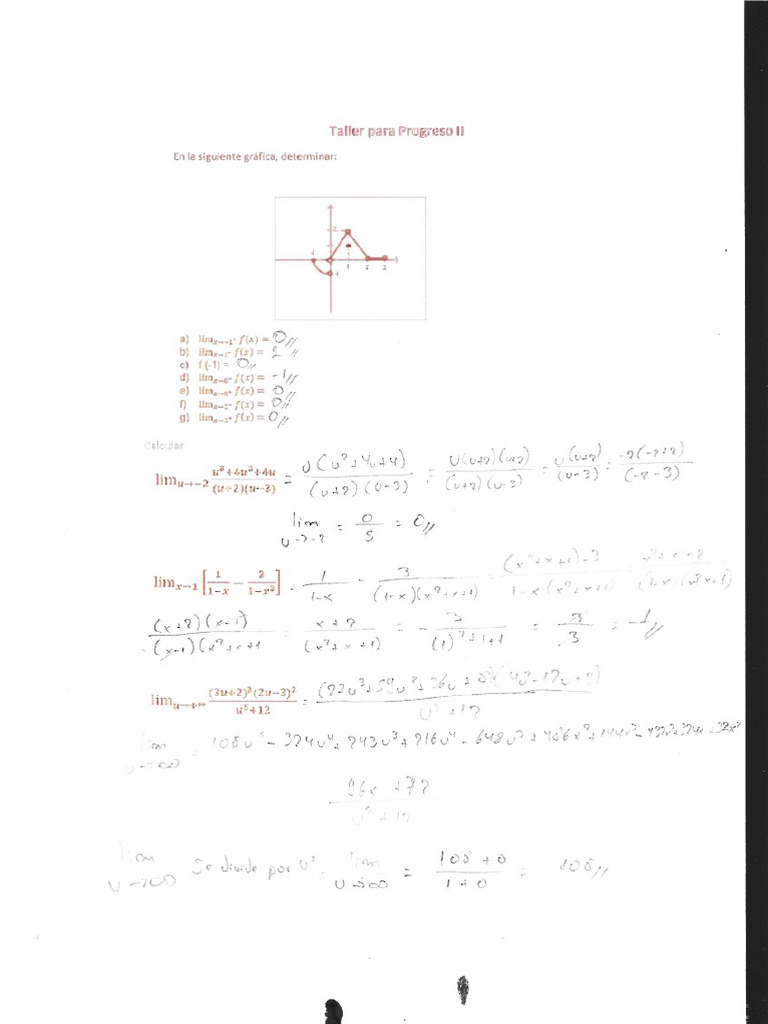 Taller para Progreso II
En la siguiente gráfica, determinar:
a) lim x→-1⁺ f(x) = 0//
b) lim x→1⁻ f(x) = 2//
c) f (-1) = 0//
d) lim x→0⁻ f(x) = -1//
e) lim x→0⁺ f(x) = 0//
f) lim x→2⁻ f(x) = 0//
g) lim x→2⁺ f(x) = 0//
Calcular
lim u→-2 (u³+4u²+4u)/((u+2)(u-3)) = U(U²+4U+4)/((U+2)(U-3)) = U(U+2)(U+2)/((U+2)(U-3)) = U(U+2)/(U-3) = -2(-2+2)/(-2-3)
lim U→-2 = 0/5 = 0//
lim x→1 [1/(1-x) - 3/(1-x³)] = 1/(1-x) - 3/((1-x)(x²+x+1)) = ((x²+x+1)-3)/(1-x(x²+x+1)) = (x²+x-2)/((1-x)(x²+x+1))
(x+2)(x-1)/(-(x-1)(x²+x+1)) = (x+2)/(x²+x+1) = -3/((1)²+1+1) = 3/3 = -1//
lim u→+∞ (3u+2)³(2u-3)²/(u⁵+12) =
lim U→∞ = 108U⁵ - 324U⁴ + 243U³ + 216U⁴ - 648U³
lim U→∞ Se divide por U⁵ = lim U→∞ = (108+0)/(1+0) = 108//